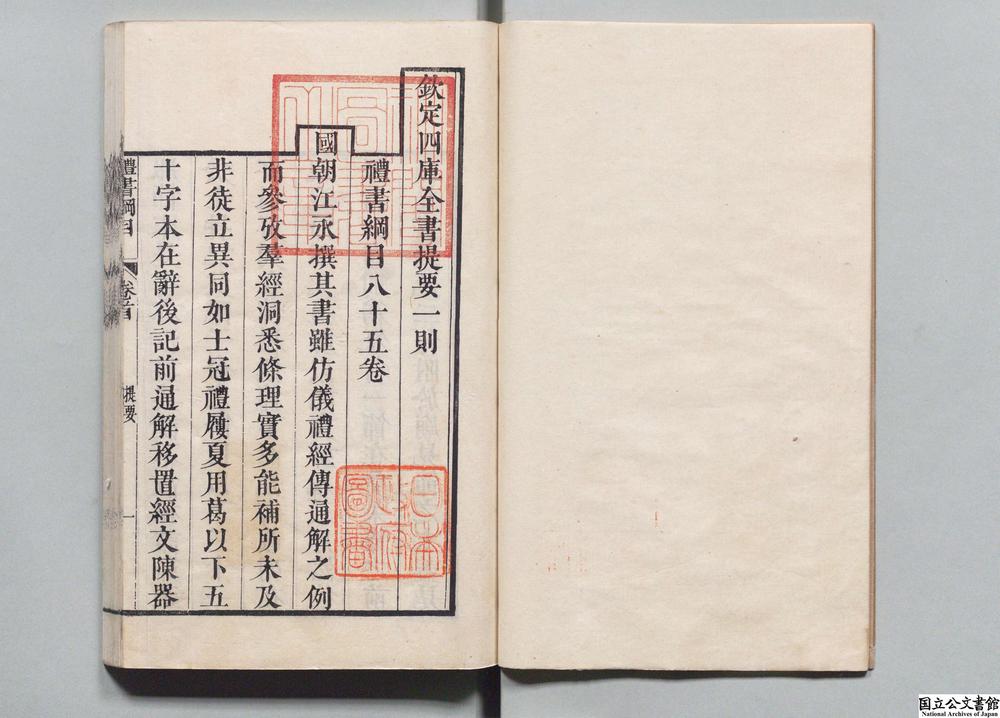 欽定四庫全書提要一則
禮書綱目八十五卷
國朝江永撰其書雖仿儀禮經傳通解之例
而參攷羣經洞悉條理實多能補所未及
非徒立異同如士冠禮屨夏用葛以下五
十字本在辭後記前通解移置經文陳器
禮書綱目
卷首
提要
一
日本
政府
圖書
国立公文書館
National Archives of Japan